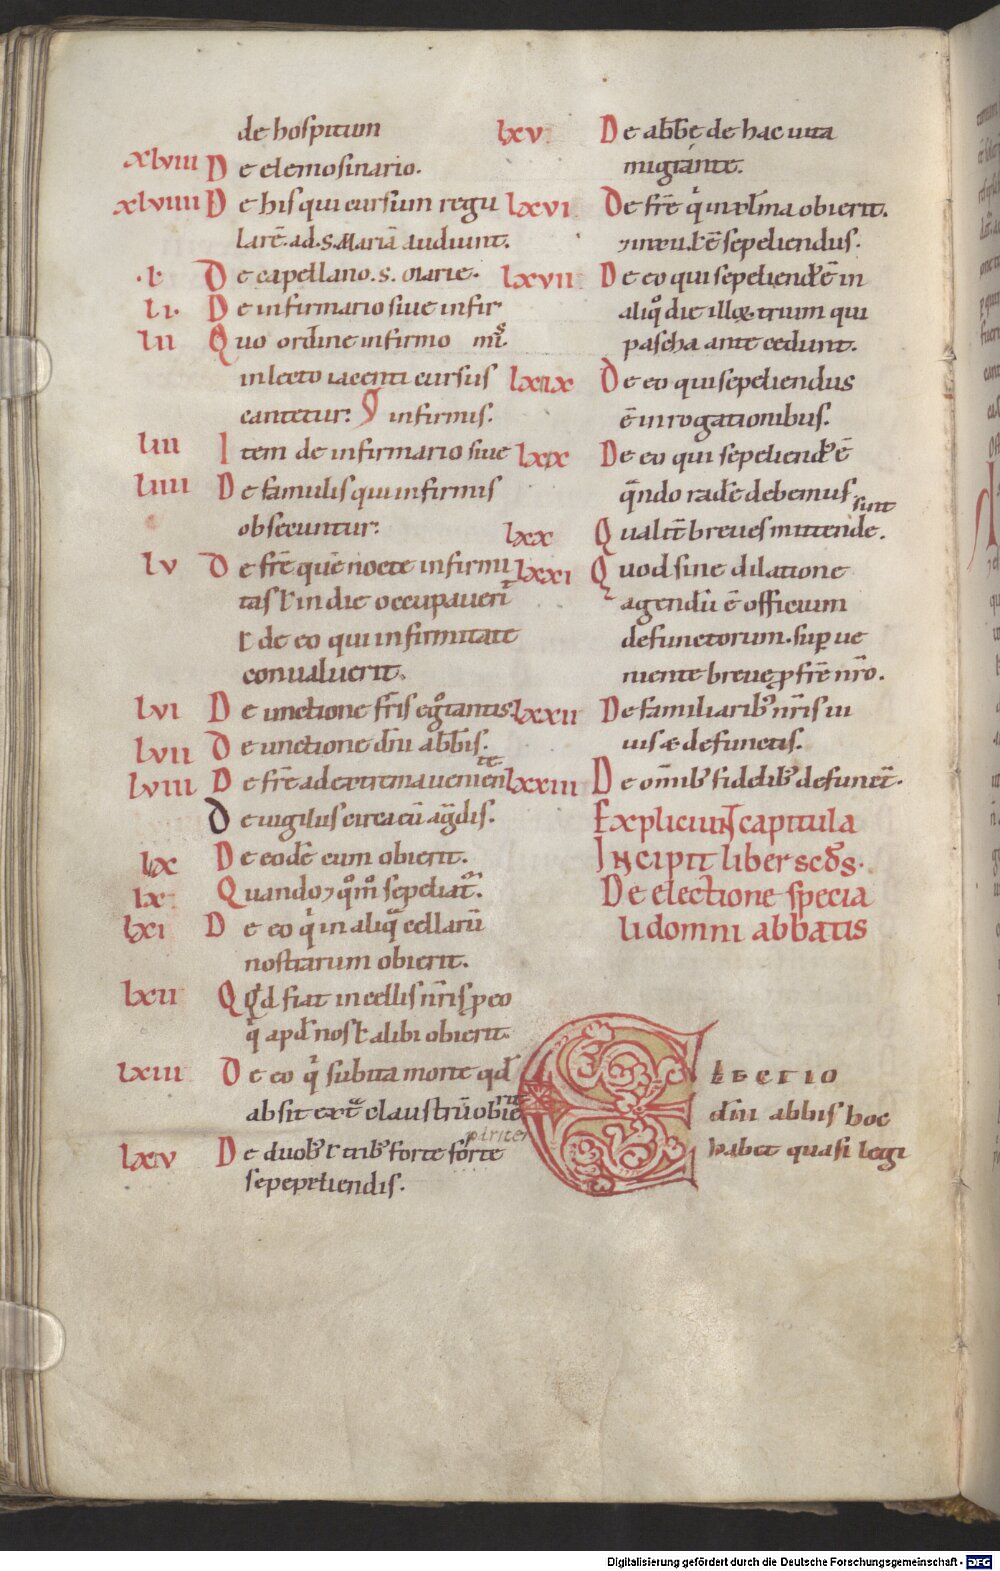 de hospitum
xlviii De elemosinario.
xlviiii De his qui cursum regu
larē. ad. s. Mariā audiunt.
.l. De capellano. s. Marie.
li. De infirmario siue infir
mis.
lii Quo ordine infirmo
in lecto iacenti cursus
cantetur: infirmis.
liii Item de infirmario siue
liiii De famulis qui infirmis
obsecuntur:
lv De frē quē nocte infirmi
tas ł in die occupauerit
ł de eo qui infirmitate
conualuerit.
lvi De unctione fr̄is egrotantis
lvii De unctione dn̄i abb̄is.
lviii De frē ad extrema uenien
te
De uigiliis circa eū agdis.
lix De eodē cum obierit.
lx Quando ⁊ qͦmͦ sepeliat᷑.
lxi De eo qͥ in aliqͣ cellarū
nostrarum obierit.
lxii Qd fiat in cellis nr̄is ꝓ eo
qͥ apd nos ł alibi obierit.
lxiii De eo qͥ subita morte qd
absit extͣ claustrū obie
rit
lxiv De duobꝰ ł tribꝰ forte sorte
pariter
sepeliendis.
lxv De abb̄e de hac uita
migrante.
lxvi De frē qͥ in xl̄ma obierit.
⁊ in ea ł ē sepeliendus.
lxvii De eo qui sepeliendꝰ ē in
aliqͦ die illoꝝ trium qui
pascha antecedunt.
lxiix De eo qui sepeliendus
ē in rogationibus.
lxix De eo qui sepeliendꝰ ē
qͣndo radē debemus
sunt
lxx Qualit̄ breues mittende.
lxxi Quod sine dilatione
agendū ē officium
defunctorum. suꝑue
niente breue ꝓ frē nr̄o.
lxxii De familiaribꝰ nr̄is ui
uis æ defunctis.
lxxiii De om̄ibꝰ fidelibꝰ defunct̄.
Expliciunt capitula
Incipit liber scds.
De electione specia
li domni abbatis
Electio
dn̄i abbis hoc
habet quasi legi
Digitalisierung gefördert durch die Deutsche Forschungsgemeinschaft - DFG